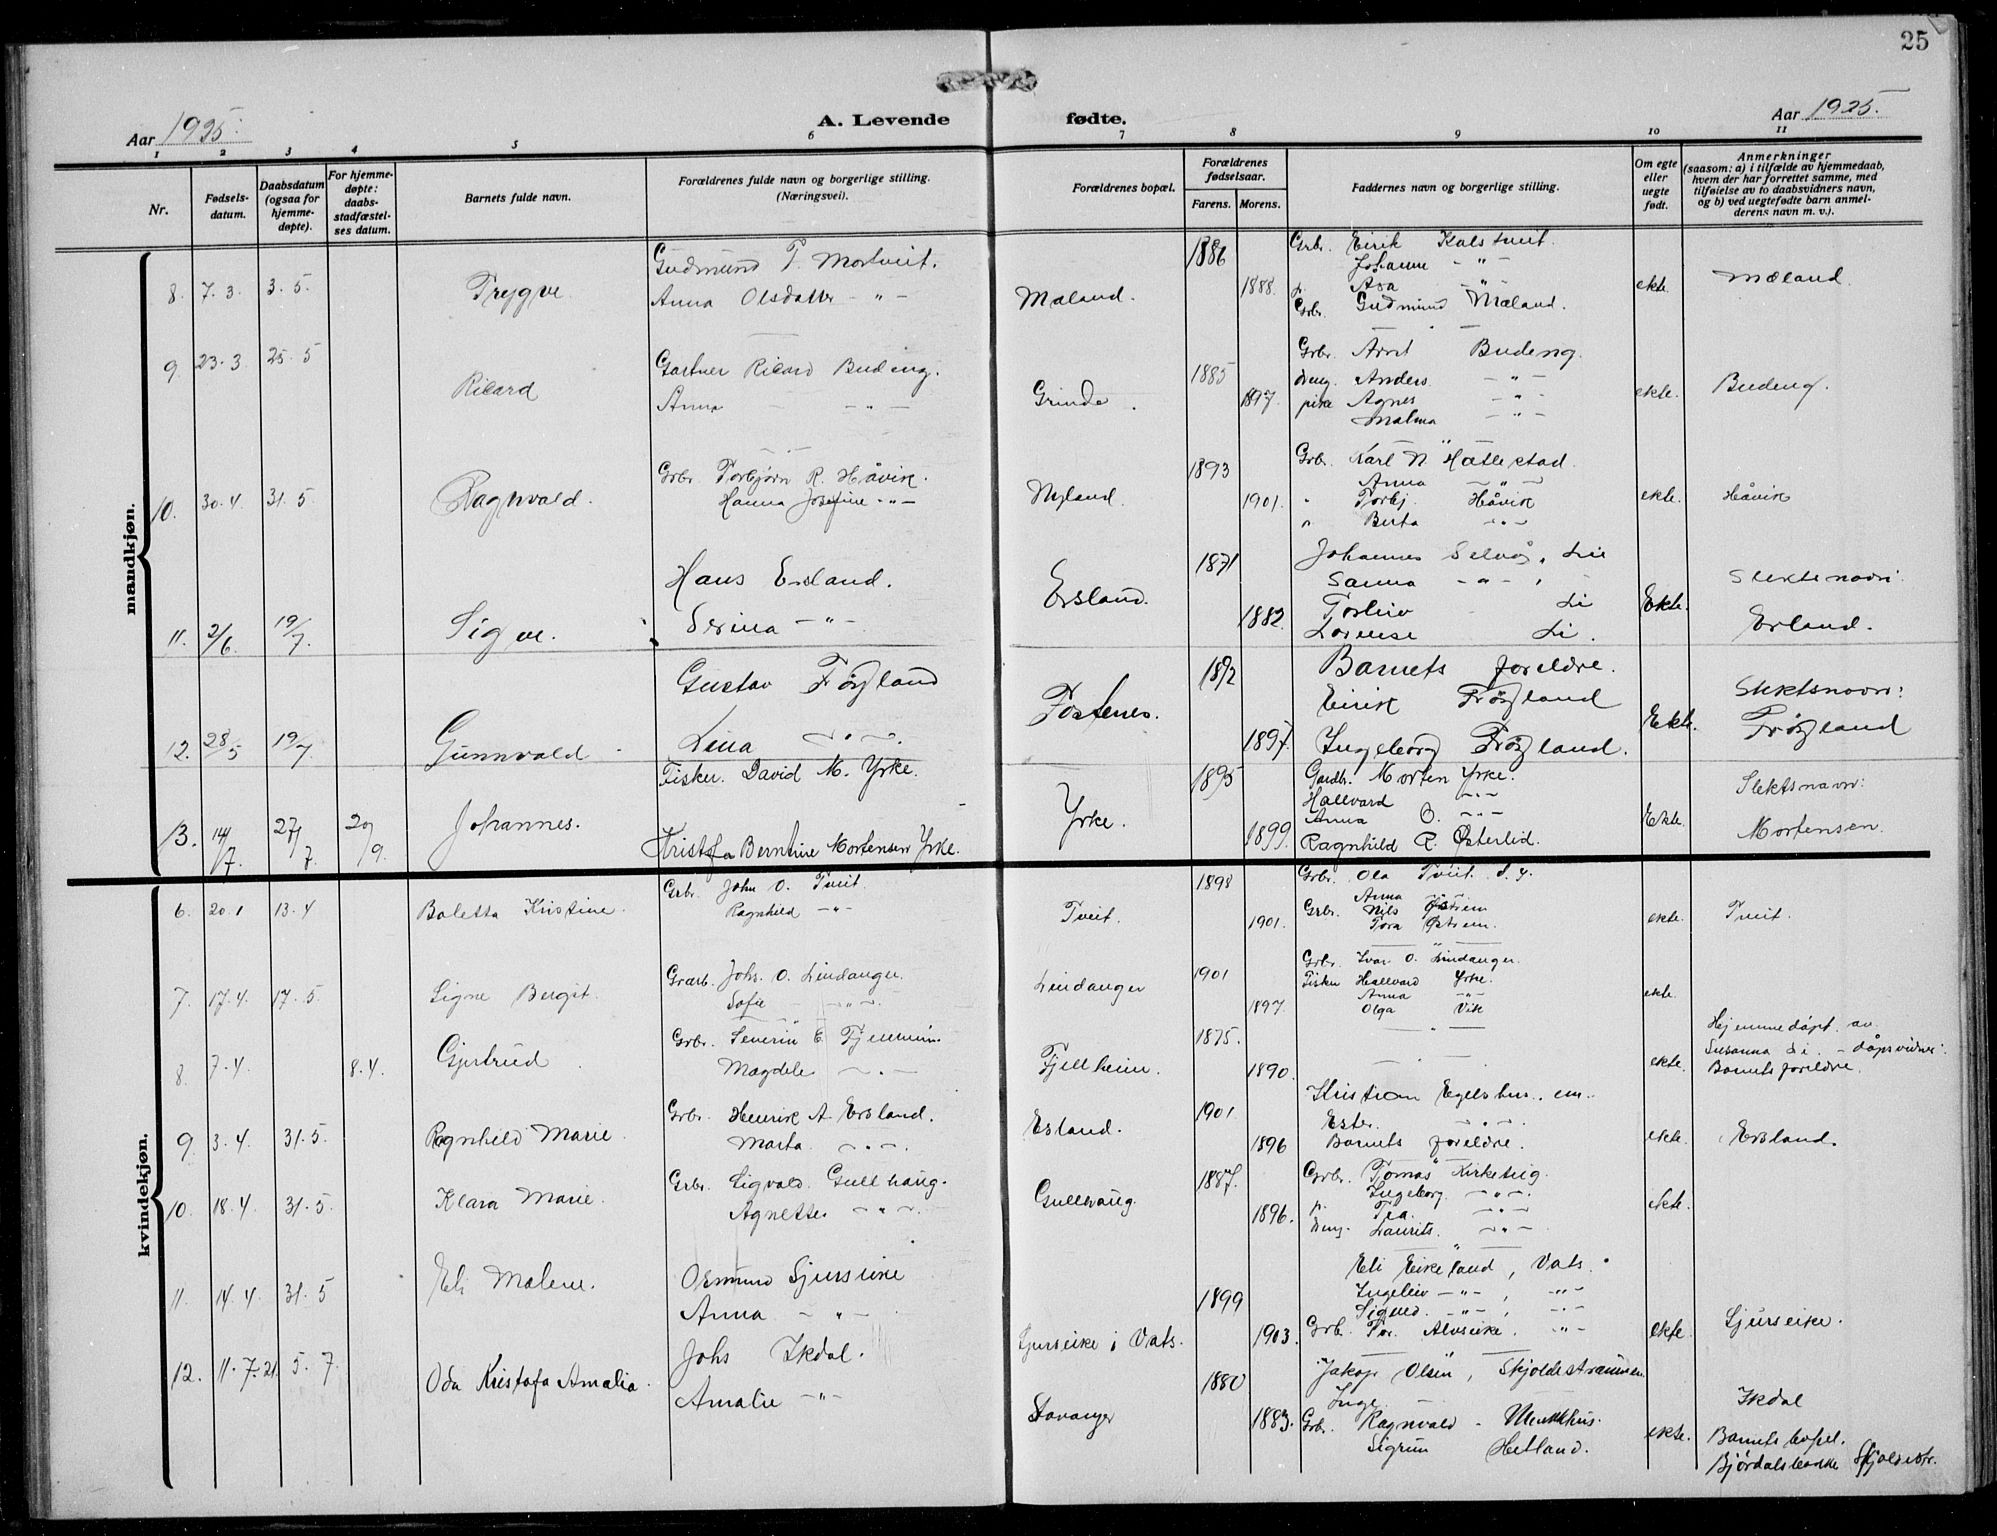 25
Aar 1925.
A. Levende fødte.
Aar 1925.
1 2 3 4 5 6 7 8 9 10 11
Nr.
Fødsels-
datum.
Daabsdatum
(ogsaa for
hjemme-
døpte).
For hjemme-
døpte:
daabs-
stadfæstel-
ses datum.
Barnets fulde navn.
Forældrenes fulde navn og borgerlige stilling.
(Næringsvei).
Forældrenes bopæl.
Forældrenes
fødselsaar.
Farens. Morens.
Faddernes navn og borgerlige stilling.
Om egte
eller
uegte
født.
Anmerkninger
(saasom: a) i tilfælde av hjemmedaab,
hvem der har forrettet samme, med
tilføielse av to daabsvidners navn,
og b) ved uegtefødte barn anmel-
derens navn m. v.).
mandkjøn.
8. 7. 3. 3. 5. Trygve
Gudmund T. Mortveit.
Anna Olsdatter - " -
Mæland.
1886
1888.
Grb. Eirik Kalstveit.
Johanne - " -
p. Asa - " -
Grb. Gudmund Mæland.
ekte.
Mæland.
9. 23. 3 25. 5 Ricard
Gartner Ricard Budeng.
Anna - " -
Grinde.
1885
1897.
Grb. Arnt Budeng.
Ung. Anders - " -
pike Agnes - " -
Malma - " -
ekte.
Budeng.
10. 30. 4. 31. 5 Ragnvald.
Grb. Torbjørn R. Håvik.
Hanna Josefine - " -
Nyland.
1893
1901.
Grb. Karl N. Hatlestad.
Anna - " -
" Torbj. Håvik
" Berta - " -
ekte.
Håvik
11. 2/6 19/7. Sigve.
Hans Ersland.
Serina - " -
Ersland.
1871
1882.
Johannes Selvåg, Lie
Sanna - " -
Torleiv Li
Lorense Li.
Ekte.
Slektsnavn:
Erland.
12. 28/5 19/7 Gunnvald
Gustav Frøyland
Lina - " -
Fosternes.
1892
1897.
Barnets foreldre.
Eirik Frøyland
Ingeborg Frøyland.
Ekte.
Slektsnavn:
Frøyland
13. 14/7 27/7. 20/9. Johannes.
Fisker. David M. Yrke.
Kristofa Berntine Mortensen Yrke.
Yrke.
1895
1899.
Gardbr. Morten Yrke.
Hallvard - " -
Anna O. - " -
Ragnhild R. Østerlid.
Ekte.
Slektsnavn:
Mortensen.
kvindekjøn.
6. 20. 1 13. 4 Boletta Kristine.
Grb. John O. Tveit.
Ragnhild - " -
Tveit.
1898
1901.
Grb. Ola Tveit d. y.
Anna - " -
Grb. Nils Østrem
Tora Østrem.
ekte.
Tveit.
7. 17. 4. 17. 5 Signe Bergit.
Grarb. Johs. O. Lindanger.
Sofie - " -
Lindanger
1901
1897.
Grb. Ivar O. Lindanger.
Fisker Hallvard Yrke.
Anna - " -
Olga Vik
ekte.
8. 7. 4. 8. 4. Gjertrud
Grb. Severin E. Fjellheim
Magdele - " -
Fjellheim.
1875.
1890.
ekte.
Hjemmedøpt av
Susanna Li. - dåpsvidner:
Barnets foreldre.
9. 3. 4. 31. 5. Ragnhild Marie.
Grb. Henrik A. Ersland.
Marta - " -
Esland.
1901.
1896
Kristian Egelshus. em.
Ester - " -
Barnets foreldre.
ekte.
Ersland.
10. 18. 4. 31. 5. Klara Marie.
Grb. Sigvald Gullhaug.
Agnette - " -
Gullhaug.
1887.
1896.
Grb. Tomas Kirketeig.
Ingeborg - " -
p. Tea. - " -
Ung. Laurits. - " -
ekte.
11. 14. 4. 31. 5 Eli Malene.
Osmund Sjurseike
Anna - " -
Sjurseike i Vats.
1899
1903.
Eli Eikeland, Vats.
Ingeleiv - " -, - " -
Signed. - " -, - " -
Grb. Tor. Alvseike. - " -
ekte.
Sjurseike.
12. 11. 7. 21 5. 7 Oda Kristofa Amalia.
Johs Ikdal.
Amalie - " -
Stavanger
1880
1883.
Jakop Olsen, Skjoldestraumen
Inge -
Grb. Ragnvald - Munkhus.
Sigrun Hetland.
ekte.
Ikdal
Barnets bopel.
Bjørdalsbakke Skjoldstr.